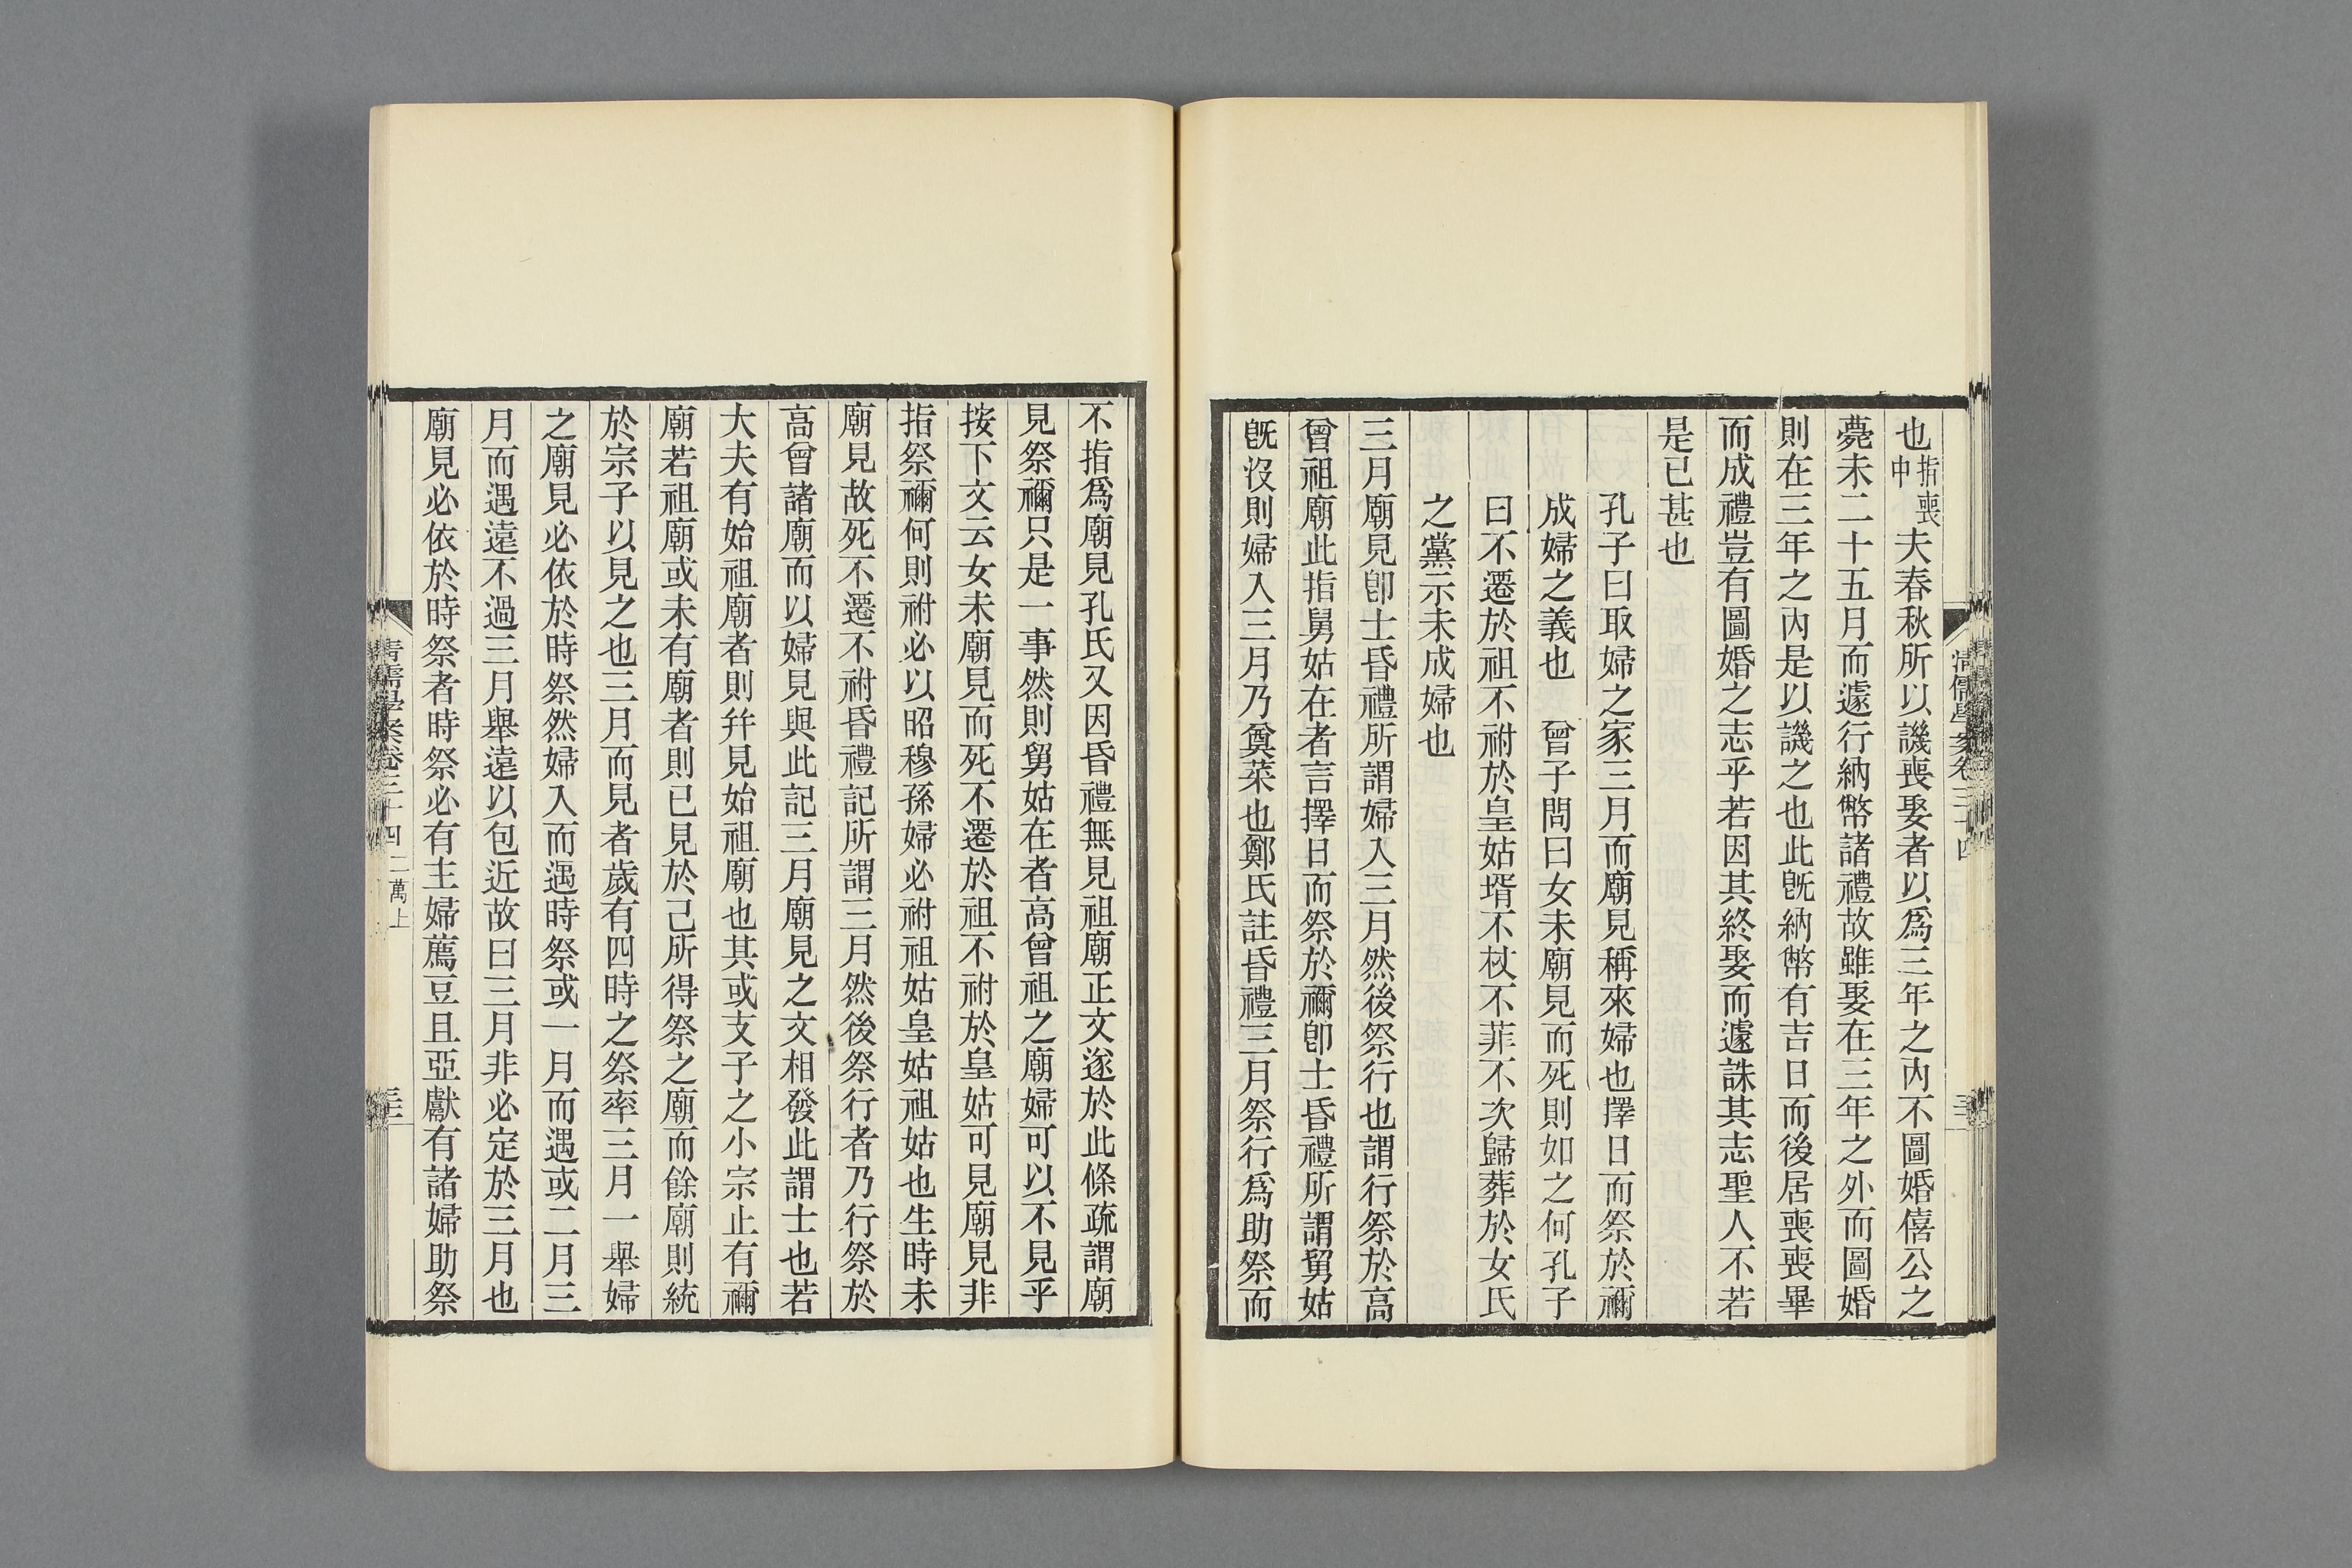 也指喪中夫春秋所以譏喪娶者以爲三年之內不圖婚僖公之
薨未二十五月而遽行納幣諸禮故雖娶在三年之外而圖婚
則在三年之內是以譏之也此旣納幣有吉日而後居喪喪畢
而成禮豈有圖婚之志乎若因其終娶而遽誅其志聖人不若
是已甚也
孔子曰取婦之家三月而廟見稱來婦也擇日而祭於禰
成婦之義也　曾子問曰女未廟見而死則如之何孔子
曰不遷於祖不祔於皇姑壻不杖不菲不次歸葬於女氏
之黨示未成婦也
三月廟見卽士昏禮所謂婦入三月然後祭行也謂行祭於高
曾祖廟此指舅姑在者言擇日而祭於禰卽士昏禮所謂舅姑
旣沒則婦入三月乃奠菜也鄭氏註昏禮三月祭行爲助祭而
清儒學案卷三十四
不指爲廟見孔氏又因昏禮無見祖廟正文遂於此條疏謂廟
見祭禰只是一事然則舅姑在者高曾祖之廟婦可以不見乎
按下文云女未廟見而死不遷於祖不祔於皇姑可見廟見非
指祭禰何則祔必以昭穆孫婦必祔祖姑皇姑祖姑也生時未
廟見故死不遷不祔昏禮記所謂三月然後祭行者乃行祭於
高曾諸廟而以婦見與此記三月廟見之文相發此謂士也若
大夫有始祖廟者則幷見始祖廟也其或支子之小宗止有禰
廟若祖廟或未有廟者則已見於己所得祭之廟而餘廟則統
於宗子以見之也三月而見者歲有四時之祭率三月一舉婦
之廟見必依於時祭然婦入而遇時祭或一月而遇或二月三
月而遇遠不過三月舉遠以包近故曰三月非必定於三月也
廟見必依於時祭者時祭必有主婦薦豆且亞獻有諸婦助祭
清儒學案卷三十四 二萬上